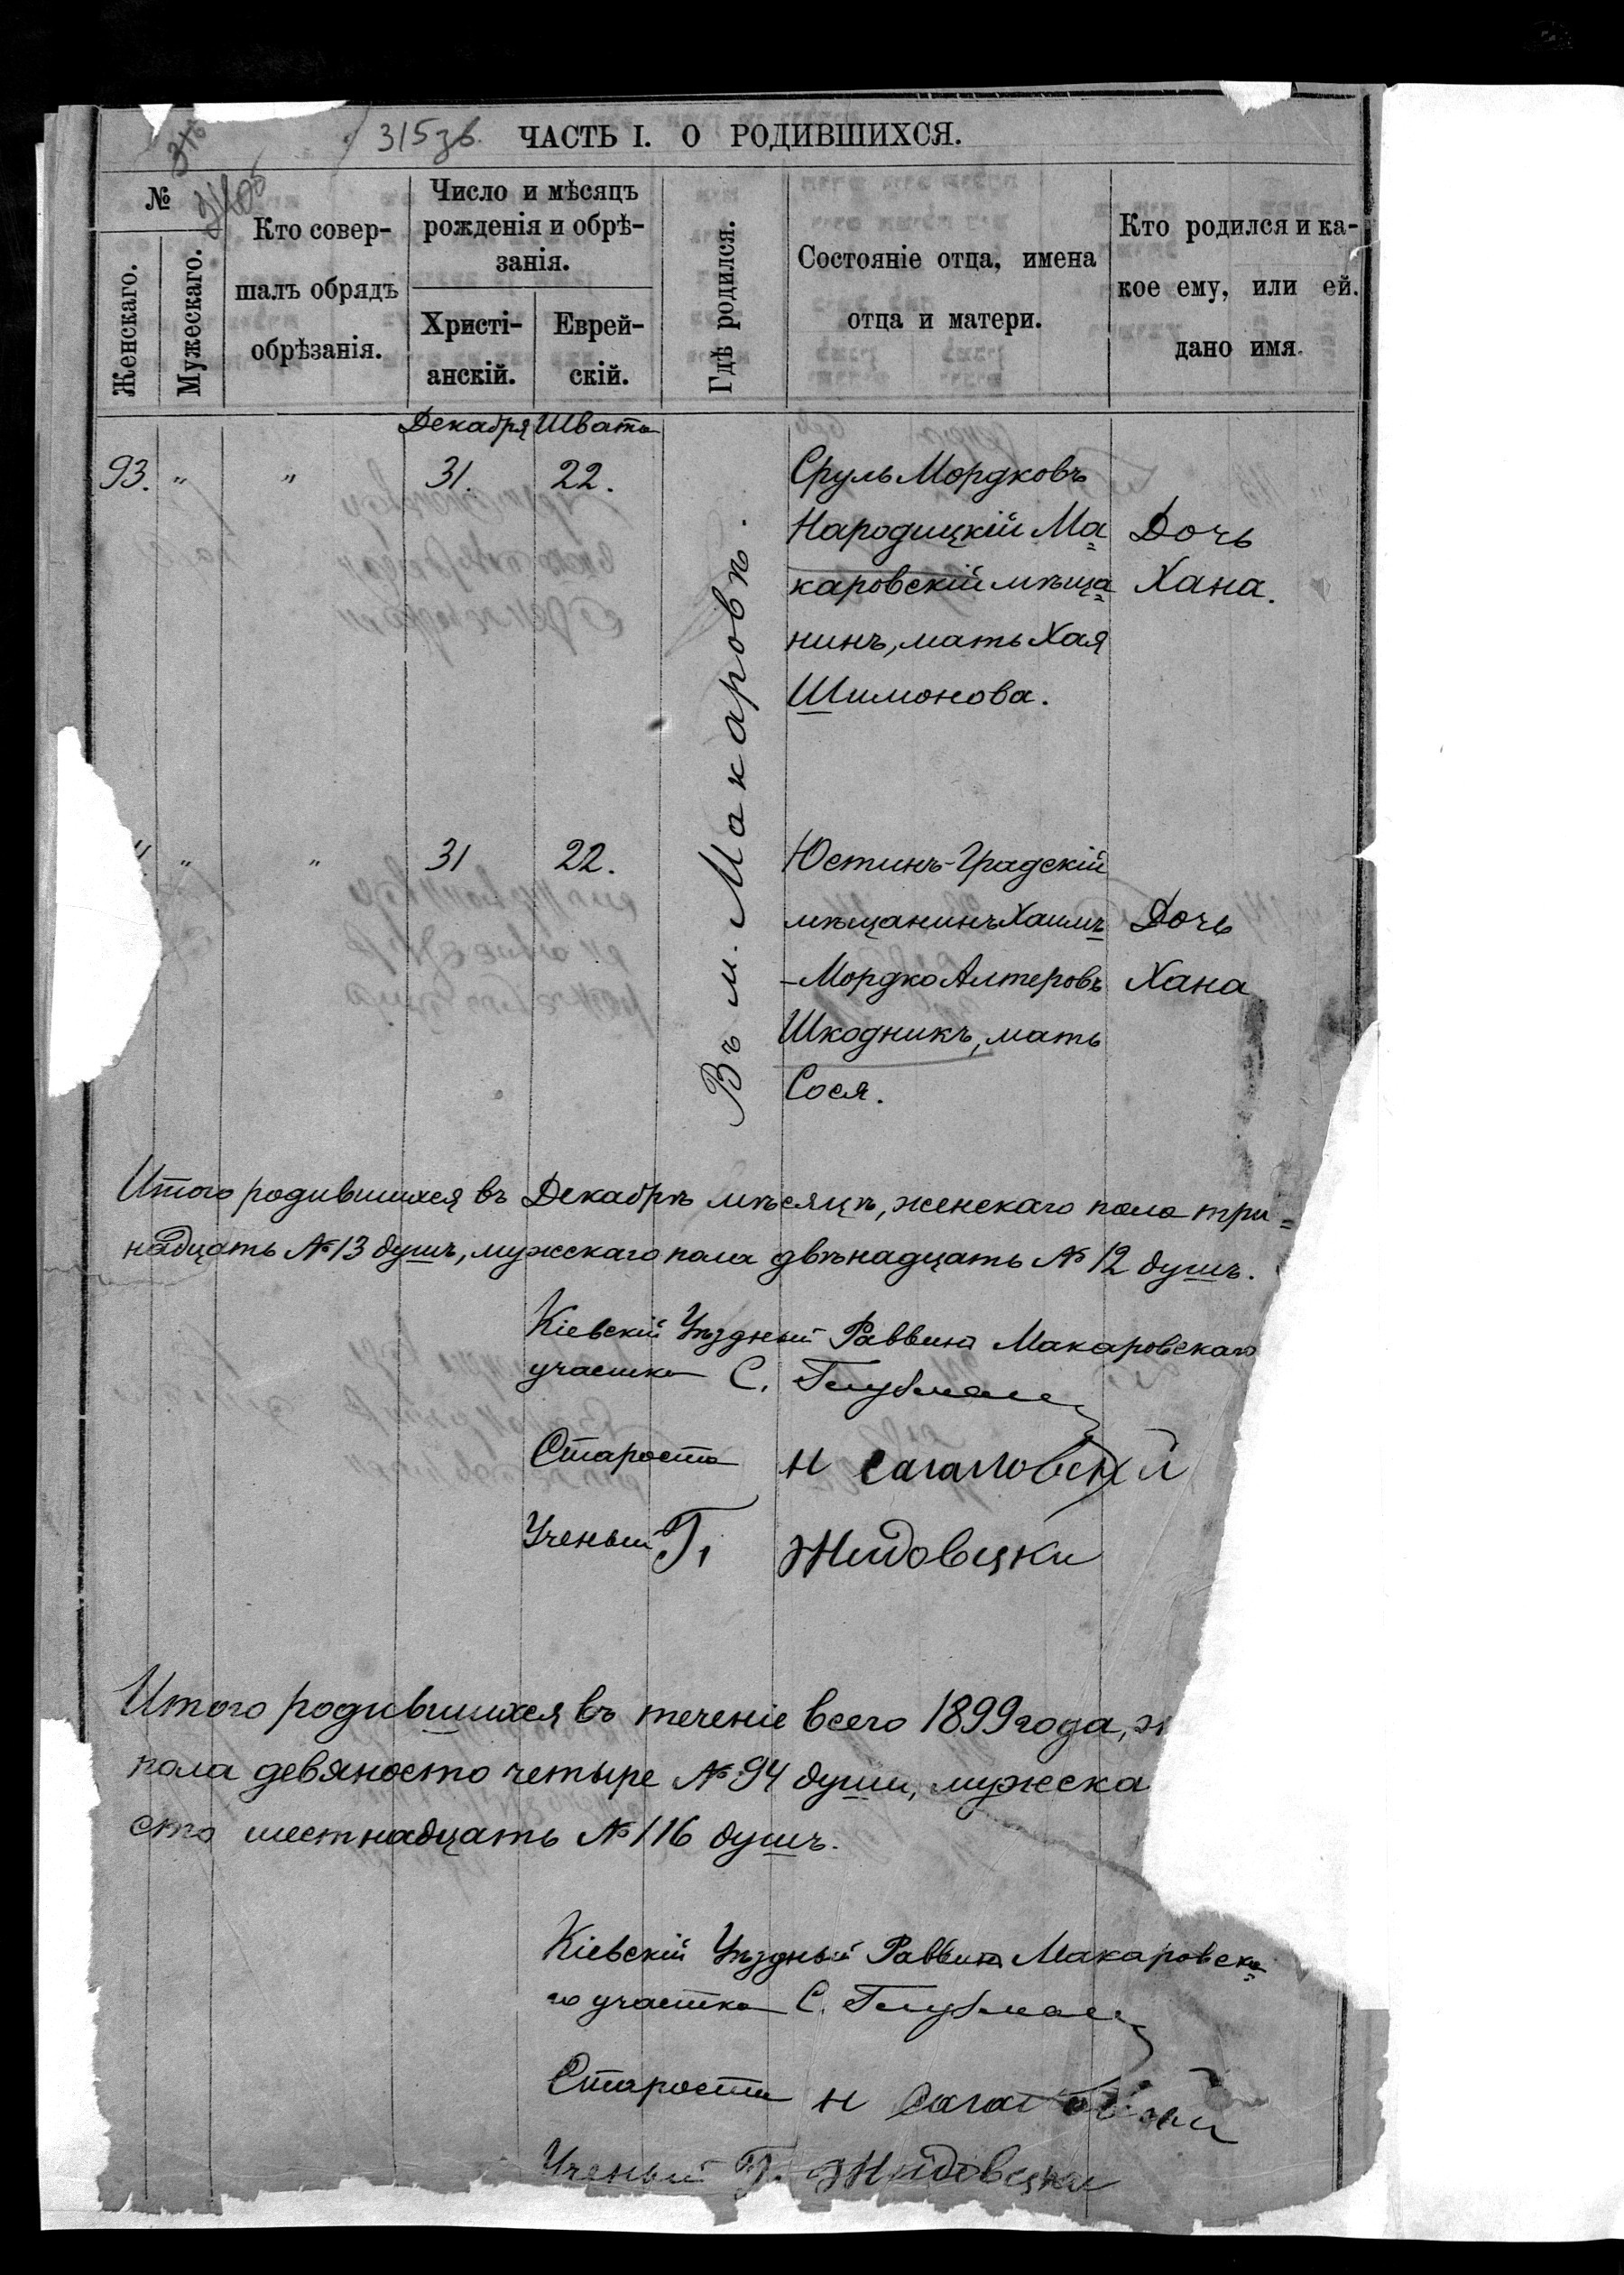 315 зв. ЧАСТЬ I. О РОДИВШИХСЯ.
№
Женскаго.
Мужескаго.
Кто совер-
шалъ обрядъ
обрѣзанія.
Число и мѣсяцъ
рожденія и обрѣ-
занія.
Христі-
анскій.
Еврей-
скій.
Гдѣ родился.
Состояніе отца, имена
отца и матери.
Кто родился и ка-
кое ему, или ей.
дано имя.
Декабря Швата
93. " " 31. 22. Сруль Мордковъ
Народицкій Ма= Дочь
каровскій мѣща= Хана.
нинъ, мать Хая
Шимонова.
Въ м. Макаровѣ.
" " 31 22. Юстинъ-Градскій
мѣщанинъ Хаимъ Дочь
-Мордко Алтеровъ Хана
Шкодникъ, мать
Сося.
Итого родившихся въ Декабрѣ мѣсяцѣ, женскаго пола три=
надцать №13 душъ, мужскаго пола двѣнадцать №12 душъ.
Кіевскій Уѣздный Раввинъ Макаровскаго
участка С.
Староста Н Сагаловский
Ученый Г. Жидовцки
Итого родившихся въ теченіе всего 1899 года, ж
пола девяносто четыре №94 души, мужска
сто шестнадцать №116 душъ.
Кіевскій Уѣздный Раввинъ Макаровска=
го участка С.
Староста Н
Ученый Г. Жидовцки